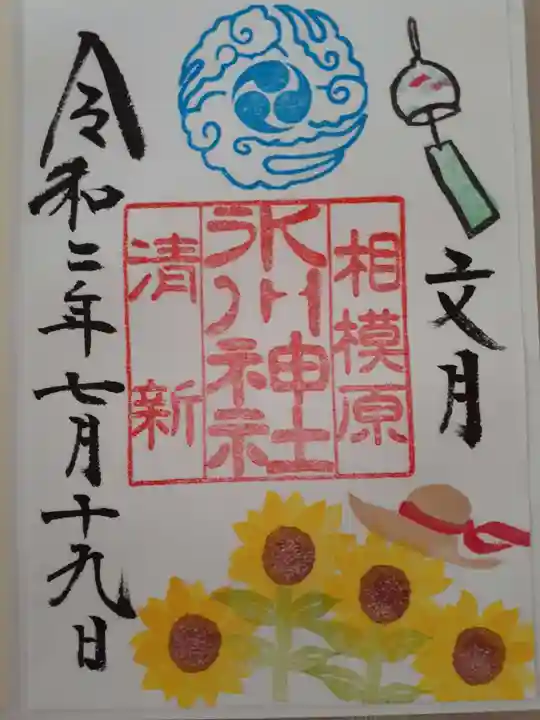 文月
相模原
氷川神社
清新
令和二年七月十九日